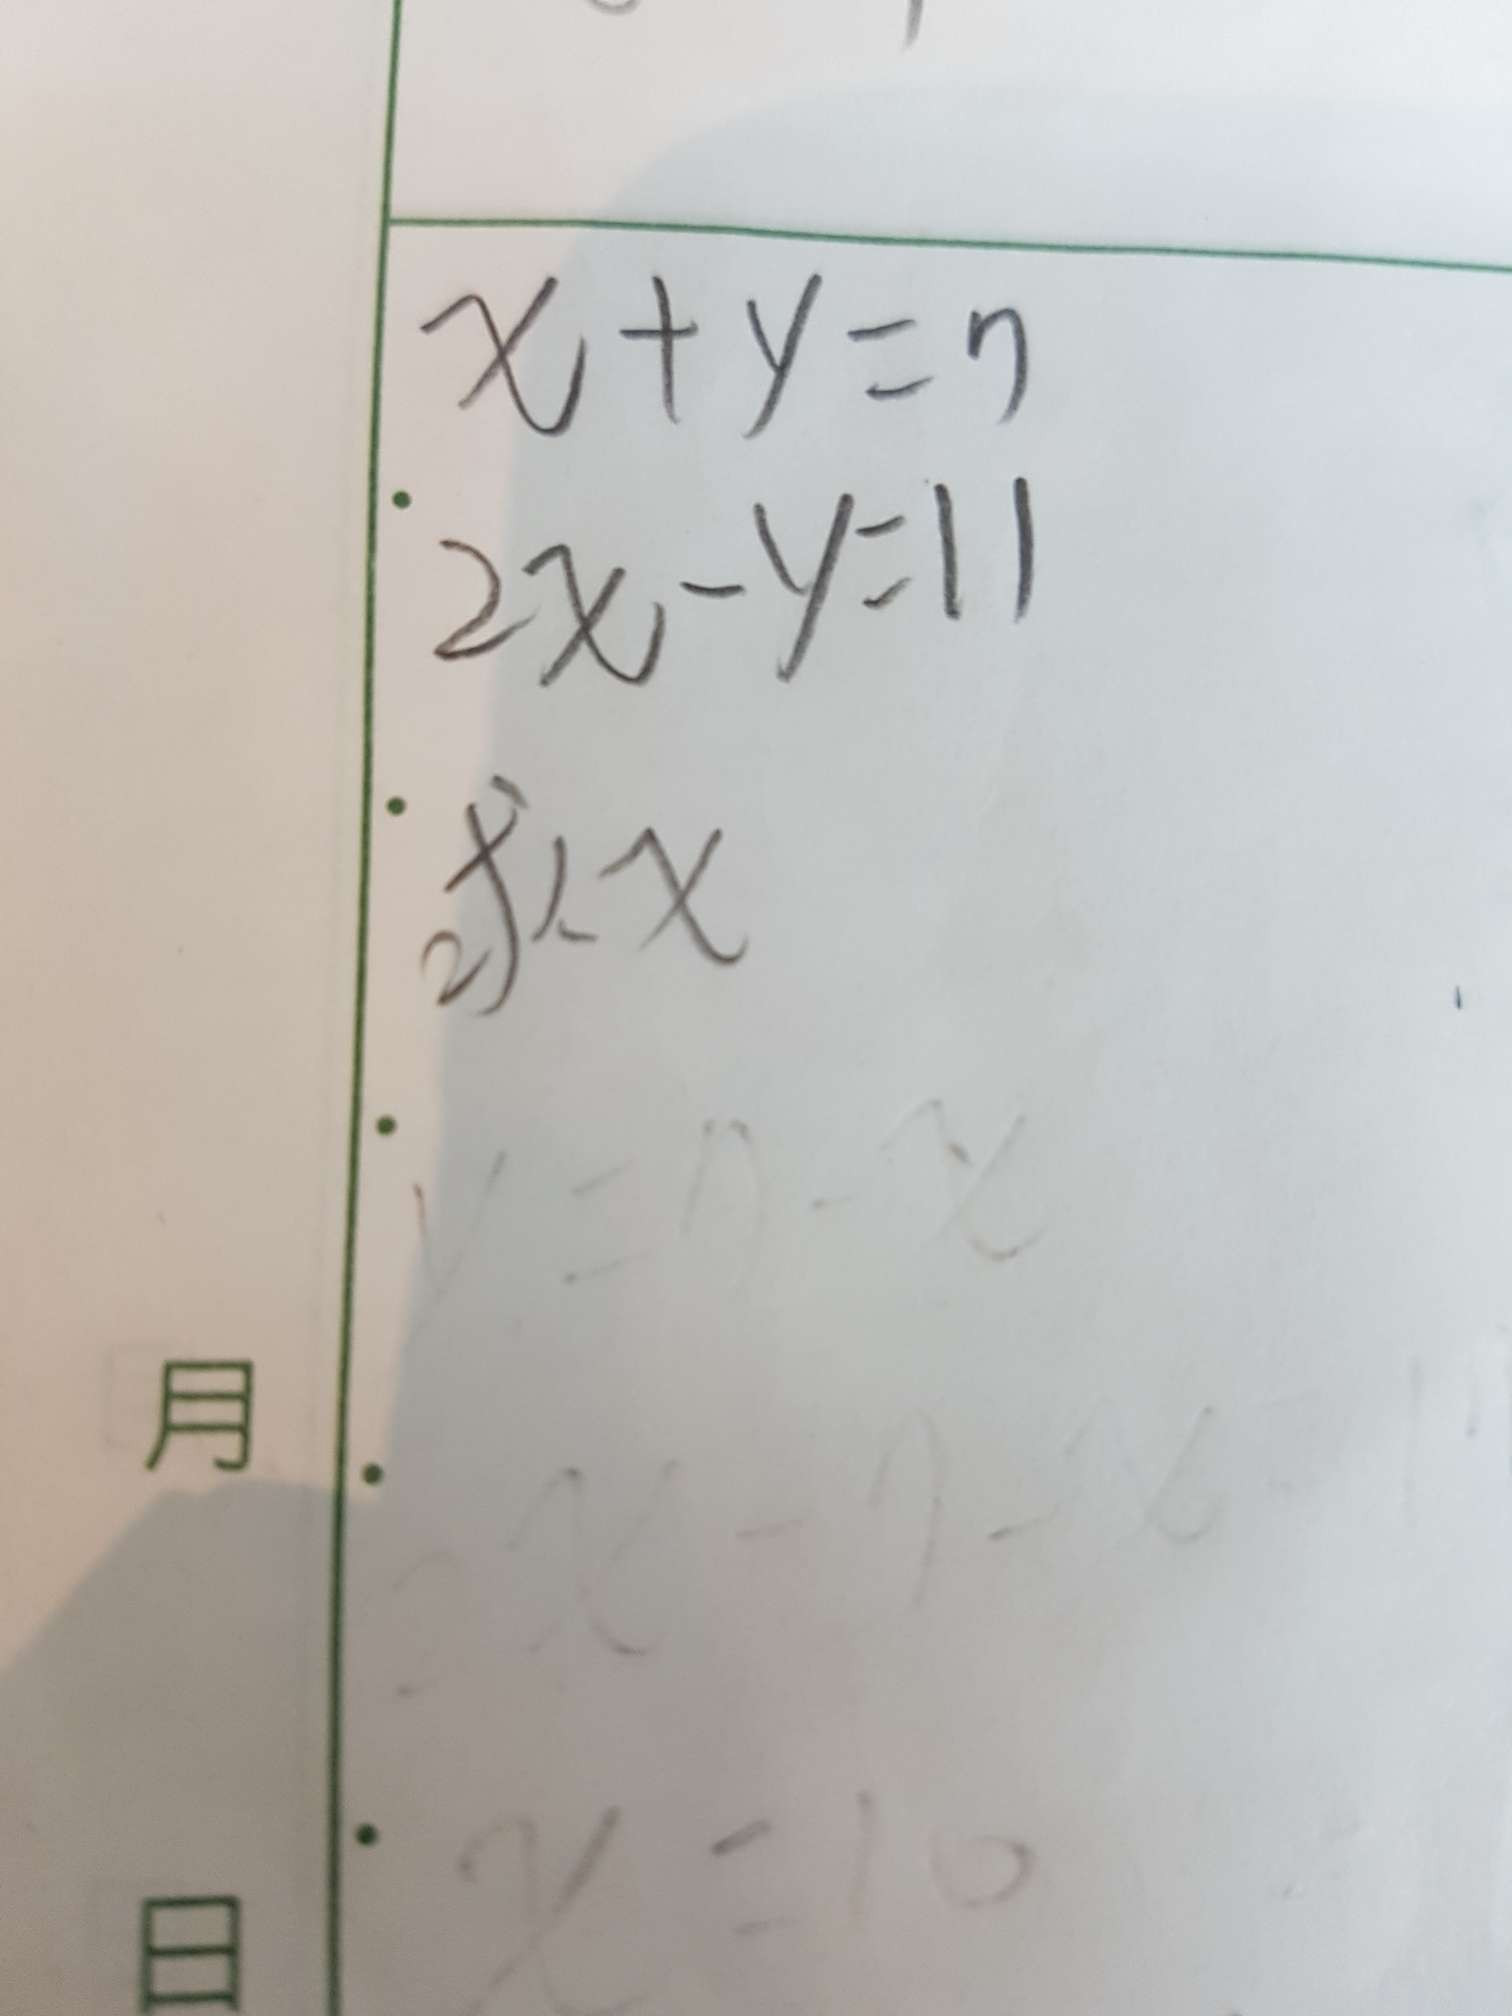 x+y=7
2x-y=11
求x
y=7-x
2x-7-x=11
x=10
月
日